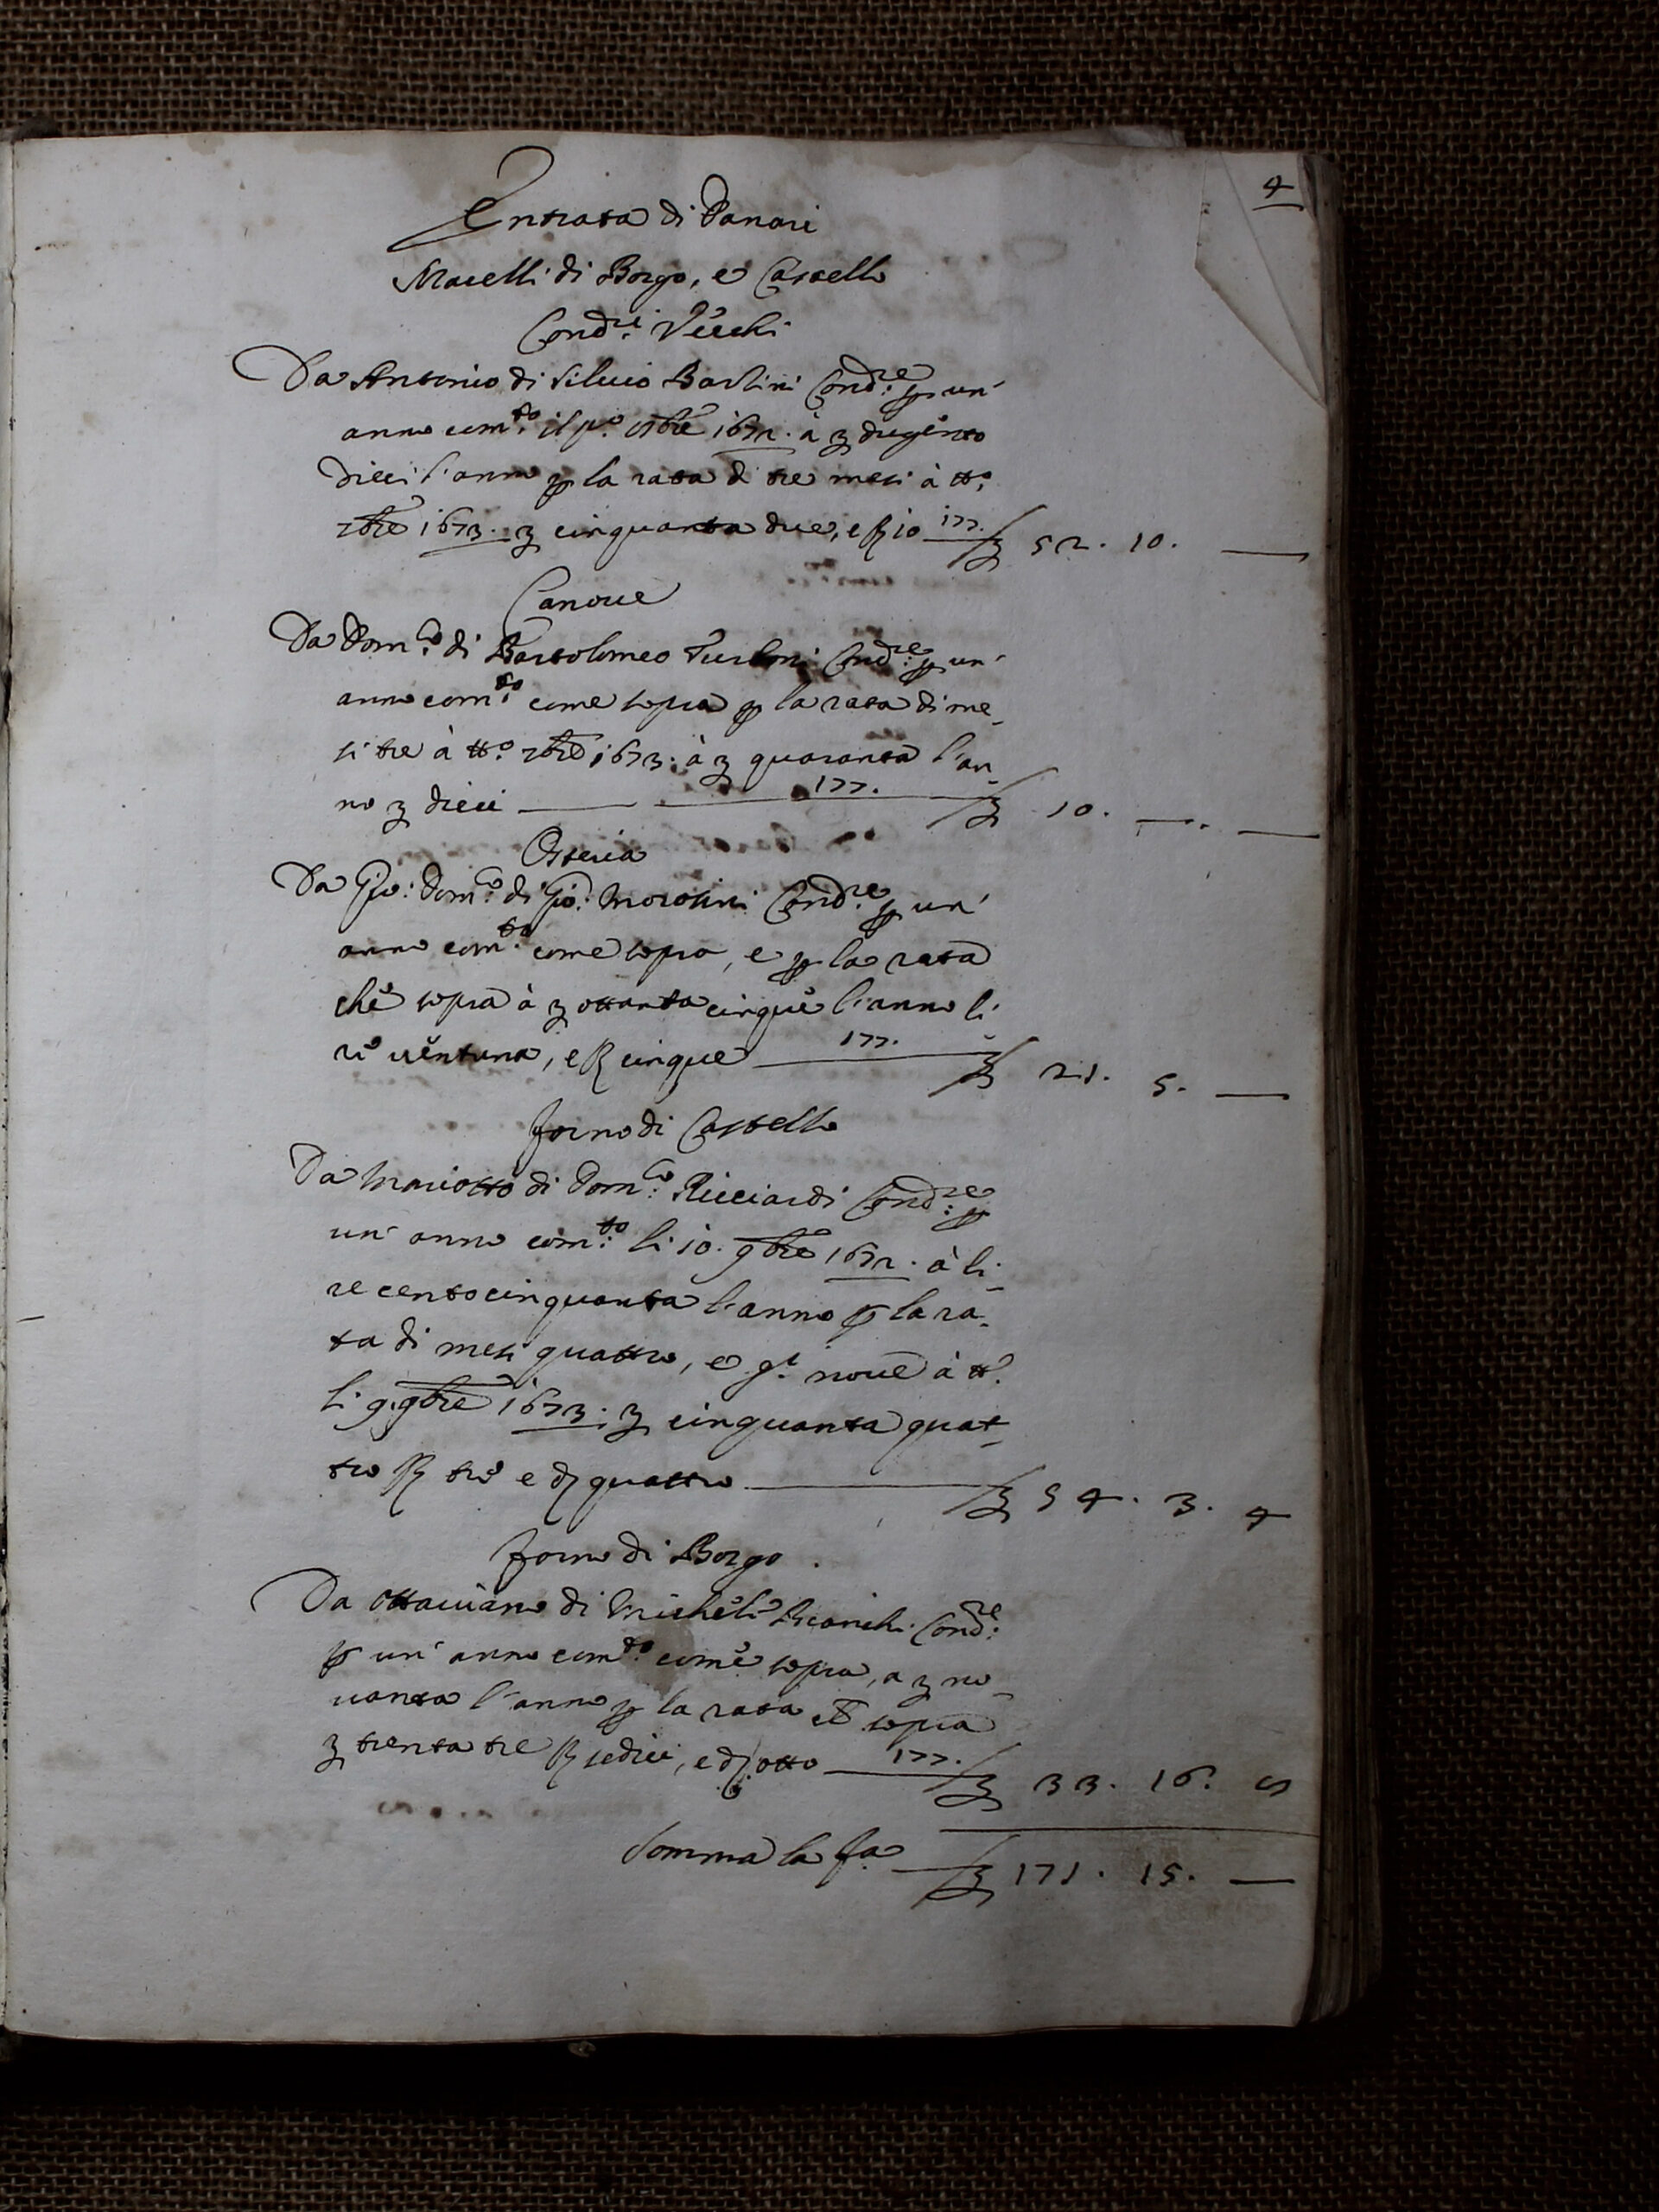 4
Entrata di Danari
Macelli di Borgo, e Castello
Cond:ri Vecchi
Da Antonio di Silvio Bartini Cond:re p un'
anno com:to il p:o 1672. à £ dugento
dieci l'anno p la rata di tre mesi à tt:o
1673. £ cinquanta due, e ß 10 177. £ 52. 10. —
Canove
Da Dom:co di Bartolomeo Cond:re p un'
anno com:to come sopra p la rata di me-
si tre à tt:o 1673: à £ quaranta l'an-
no £ dieci — 177. £ 10. —. —
Osteria
Da Gio: Dom:co di Gio: Morosini Cond:re p un'
anno com:to come sopra, e p la rata
che sopra à £ ottanta cinque l'anno li-
re ventuna, e ß cinque 177. £ 21. 5. —
Forno di Castello
Da Mariotto di Dom:co Ricciardi Cond:re p
un' anno com:to li 10. 9bre 1672. à li-
re centocinquanta l'anno p la ra-
ta di mesi quattro, e g:i nove à tt:o
li 9. 9bre 1673: £ cinquanta quat-
tro ß tre e d quattro — £ 54. 3. 4
Forno di Borgo.
Da Ottaviano di Michele Bianchi Cond:re
p un' anno com:to come sopra, a £ no-
vanta l'anno p la rata che sopra
£ trenta tre ß sedici, e d: otto — 177. £ 33. 16. 8
Somma la fa: — £ 171. 15. —